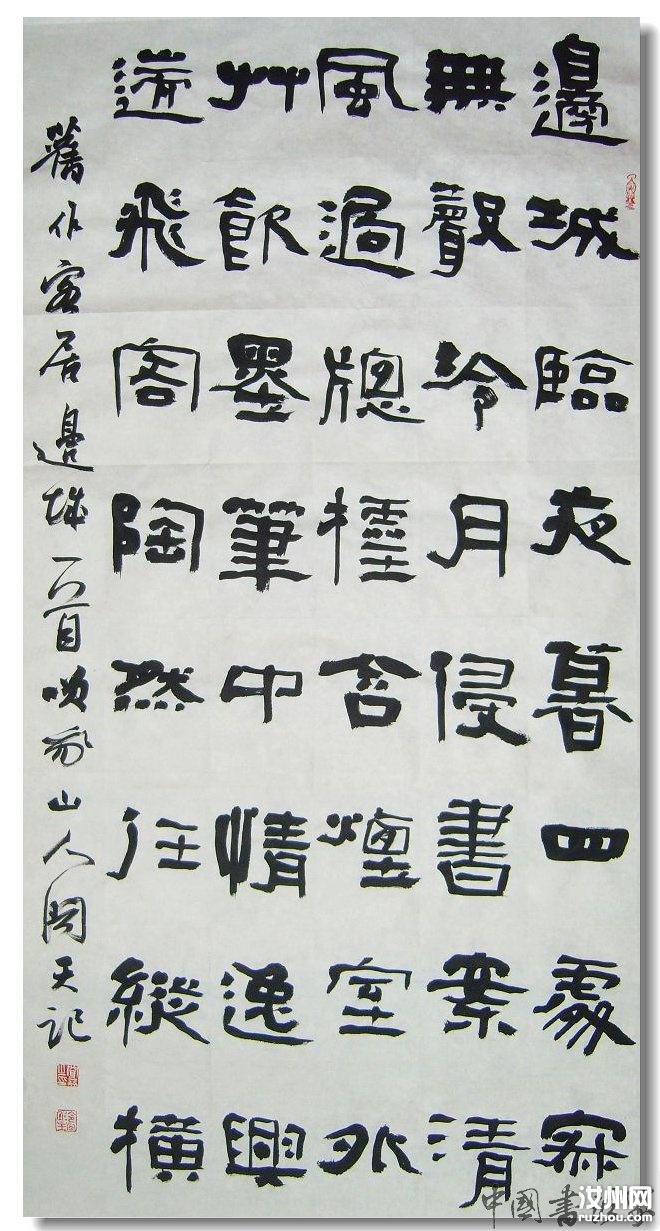 邊城臨夜暮四處寂
無聲冷月侵書案清
風過牕含煙室外
艸飲墨筆中情逸興
遄飛閣陶然任縱橫
舊作客居邊城一首山人天記
中國書
汝州网
ruzhou.com